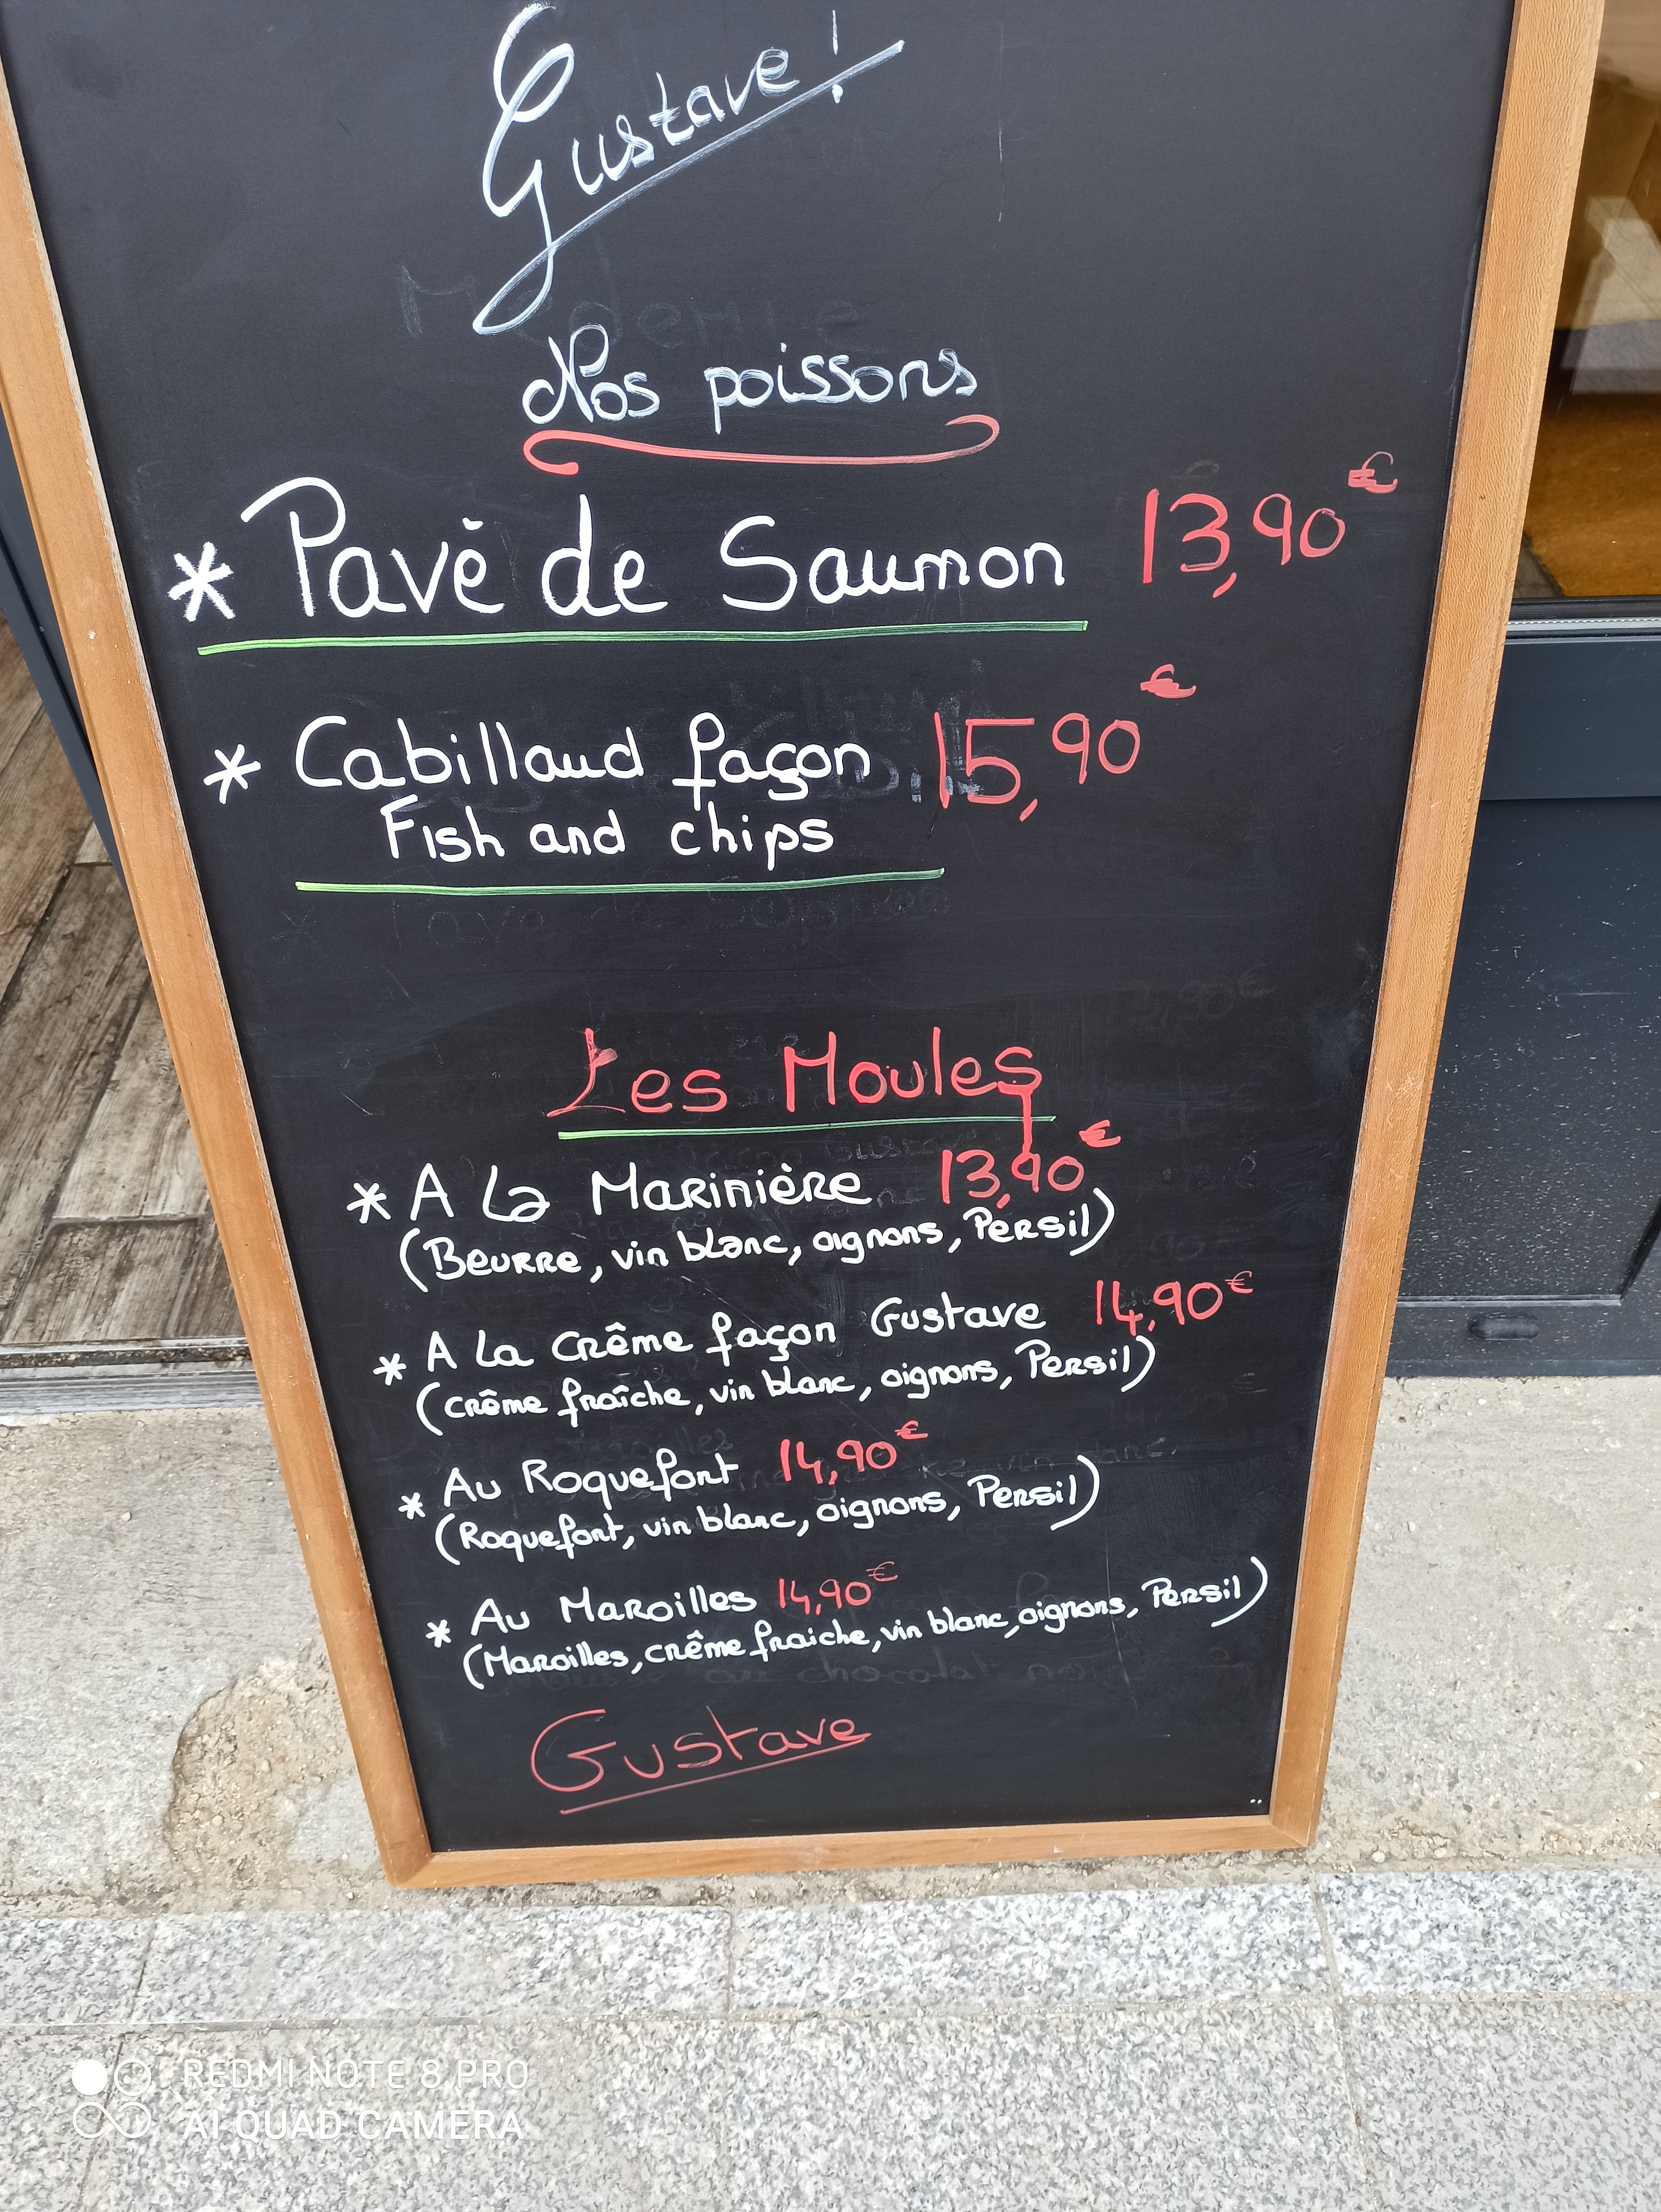 Gustave !
Nos poissons
* Pavé de Saumon 13,90€
* Cabillaud façon 15,90€
Fish and chips
Les Moules
* A La Marinière 13,90€
(Beurre, vin blanc, oignons, Persil)
* A La crême façon Gustave 14,90€
(crême fraîche, vin blanc, oignons, Persil)
* Au Roquefort 14,90€
(Roquefort, vin blanc, oignons, Persil)
* Au Maroilles 14,90€
(Maroilles, crême fraiche, vin blanc, oignons, Persil)
Gustave
REDMI NOTE 8 PRO
AI QUAD CAMERA